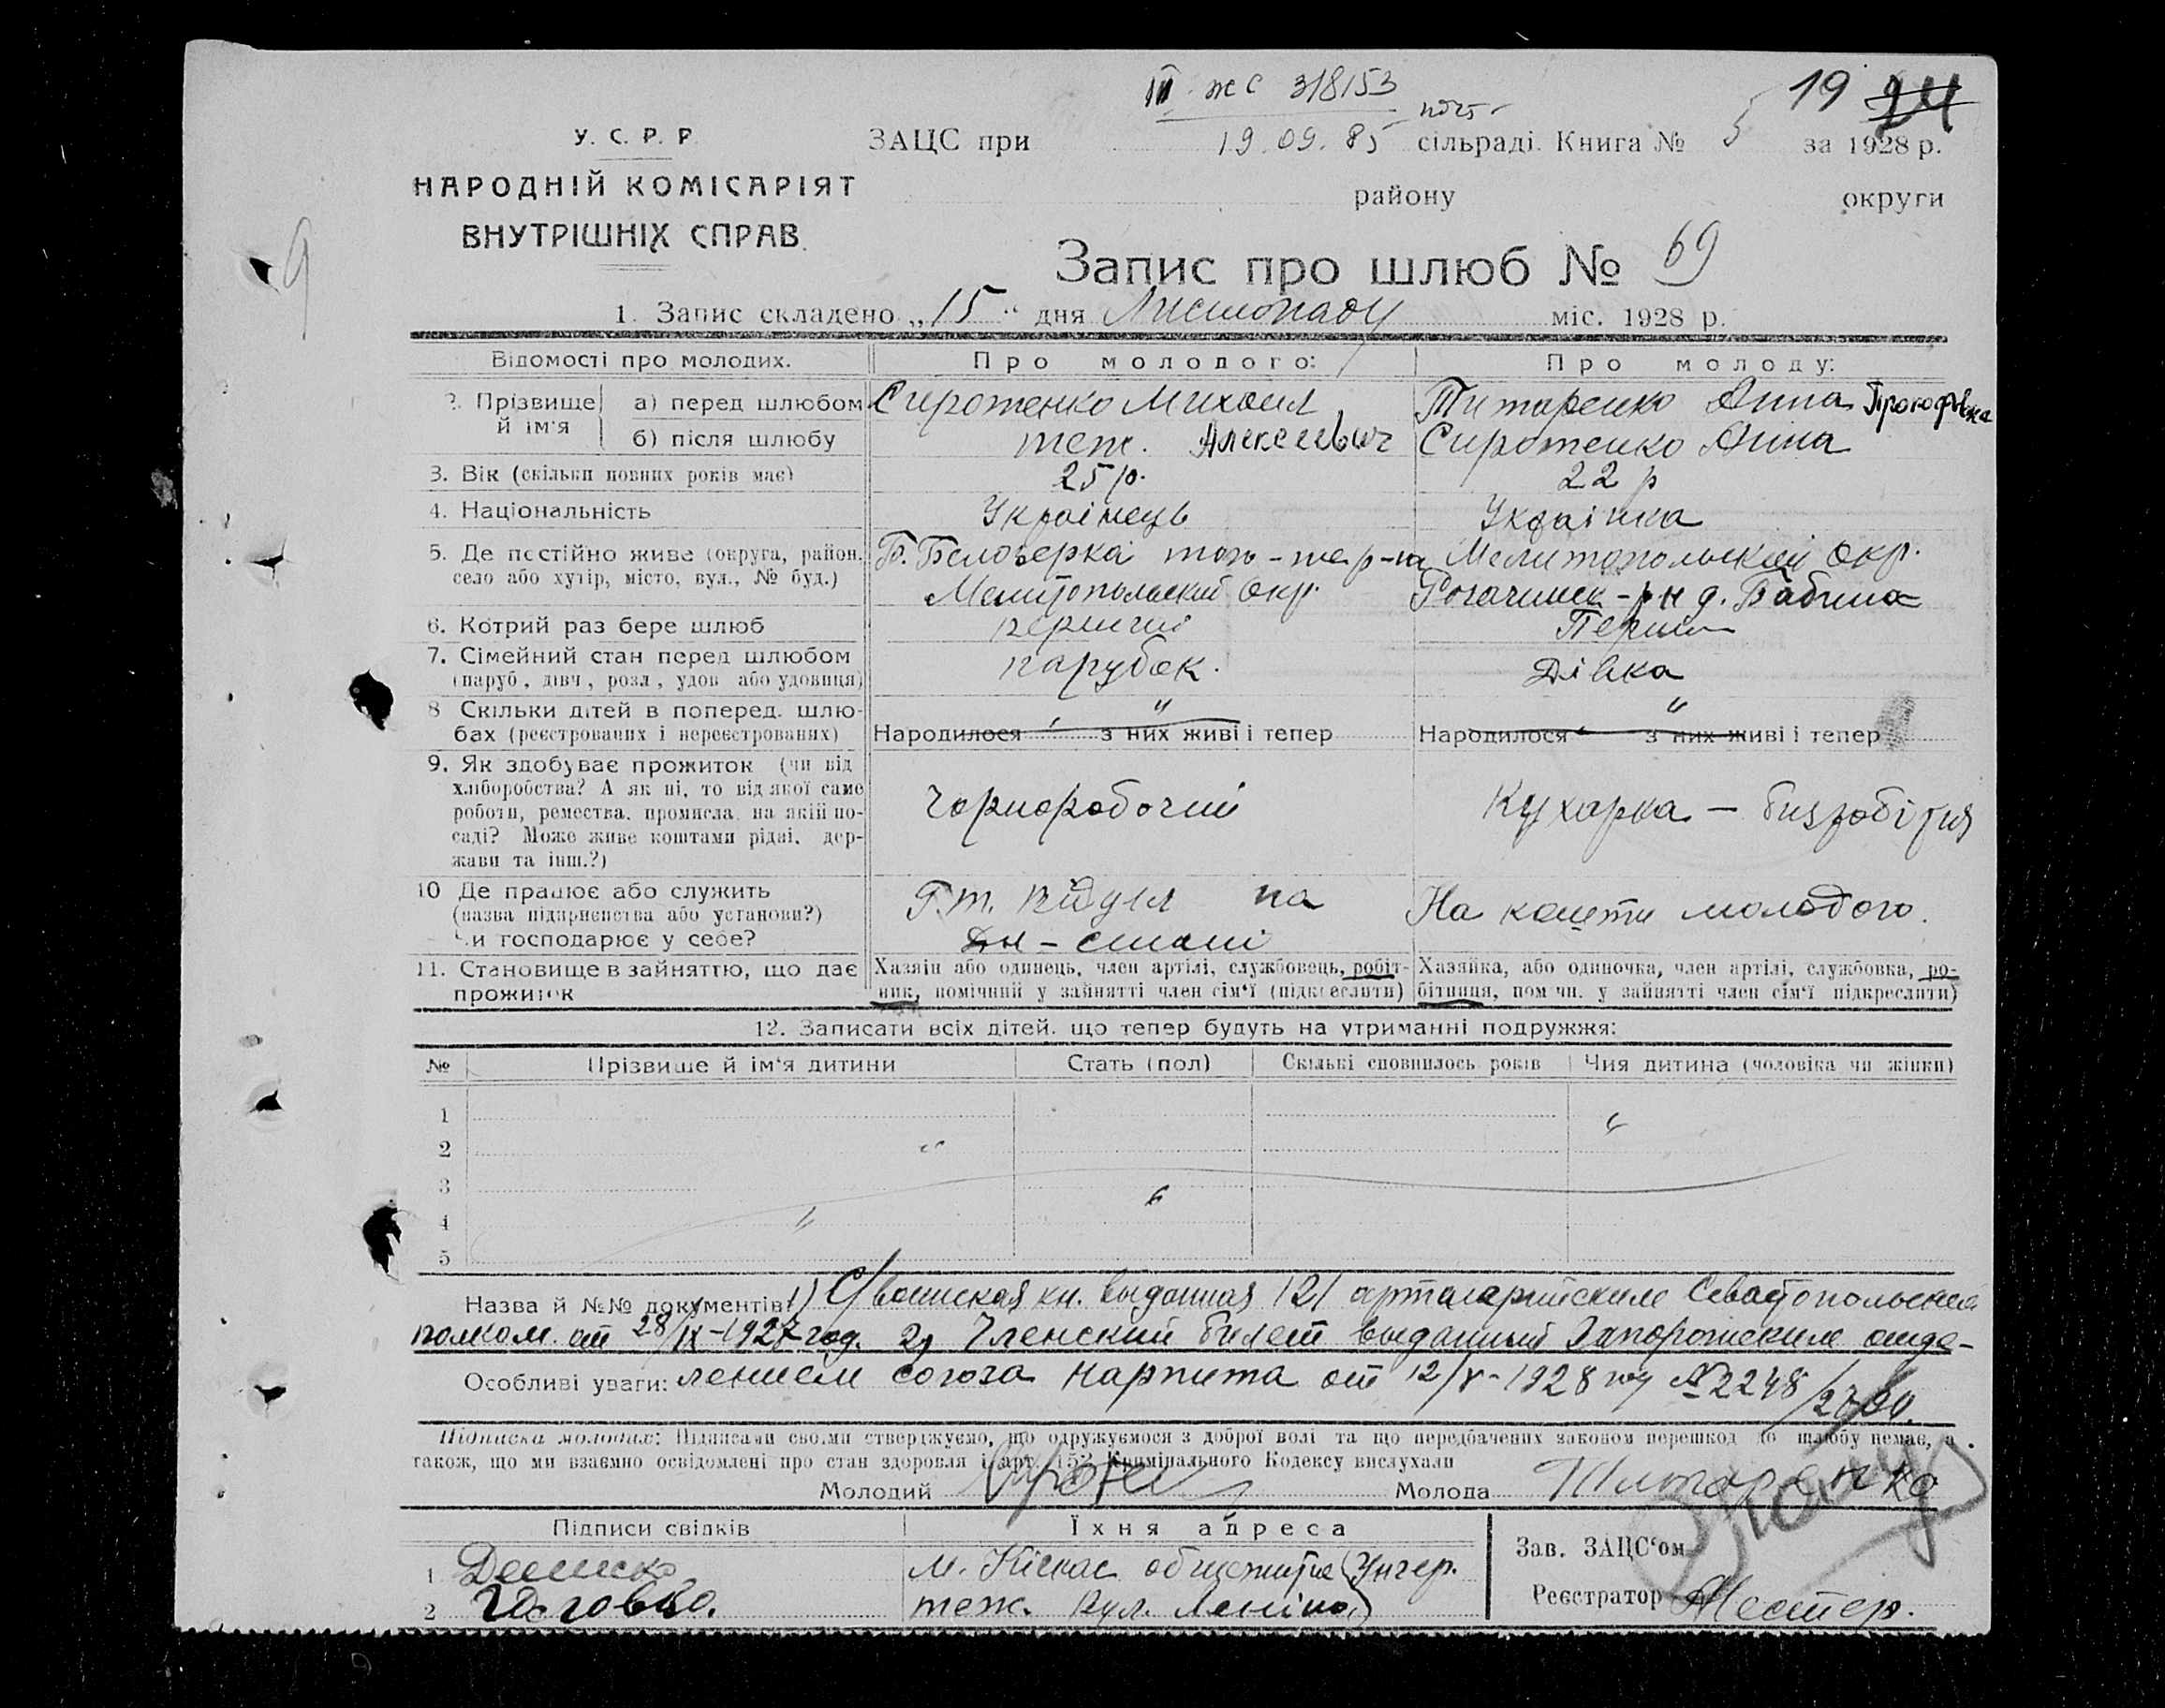 III жс 318153
19 24
У. С. Р. Р. ЗАЦС при 19.09.85 сільраді. Книга № 5 за 1928 р.
НАРОДНІЙ КОМІСАРІЯТ району округи
ВНУТРІШНІХ СПРАВ.
9
Запис про шлюб № 69
1. Запис складено „15“ дня Листопаду міс. 1928 р.
Відомості про молодих. Про молодого: Про молоду:
2. Прізвище й ім'я а) перед шлюбом Сиротенко Михаил Титаренко Анна Прокофьвна
б) після шлюбу теж. Алексеевич Сиротенко Анна
3. Вік (скільки повних років має) 25 р. 22 р
4. Національність Українець Українка
5. Де постійно живе (округа, район, Б. Белозерка Мелитопольский окр.
село або хутір, місто, вул., № буд.) Мелитопольский окр. Рогачинск - р-н д. Бабина
6. Котрий раз бере шлюб перший Перший
7. Сімейний стан перед шлюбом парубок. Дівка
(паруб., дівч., розл., удов. або удовиця)
8 Скільки дітей в поперед. шлю- " "
бах (реєстрованих і нереєстрованих) Народилося з них живі і тепер Народилося з них живі і тепер
9. Як здобуває прожиток (чи від
хліборобства? А як ні, то від якої саме Чорноробочий Кухарка — безробітня
роботи, ремества, промисла, на якій по-
саді? Може живе коштами рідні, дер-
жави та інш.?)
10 Де працює або служить відділ на На кошти молодого.
(назва підприємства або установи?)
Чи господарює у себе?
11. Становище в зайняттю, що дає Хазяїн або одинець, член артілі, службовець, робіт- Хазяйка, або одиночка, член артілі, службовка, ро-
прожиток ник, помічний у зайнятті член сім'ї (підкреслити) бітниця, пом чн. у зайнятті член сім'ї підкреслити)
12. Записати всіх дітей, що тепер будуть на утриманні подружжя:
№ Прізвище й ім'я дитини Стать (пол) Скількі сповнилось років Чия дитина (чоловіка чи жінки)
1
2
3
4
5
Назва й №№ документів: 1) воинская кн. выданная 121 артилерийским Севастопольским
полком от 28/IX-1927 год. 2) Членский билет выданный Запорожским отде-
Особливі уваги: лением союза Нарпита от 12/V-1928 году №2248
Підписка молодих: Підписами своїми стверджуємо, що одружуємося з доброї волі та що передбачених законом перешкод до шлюбу немає, а
також, що ми взаємно освідомлені про стан здоровля і арт. 152 Кримінального Кодексу вислухали
Молодий Молода Титаренко
Підписи свідків Їхня адреса Зав. ЗАЦС'ом
1 м. Кічкас общежитие
2 теж. вул. Леніна Реєстратор